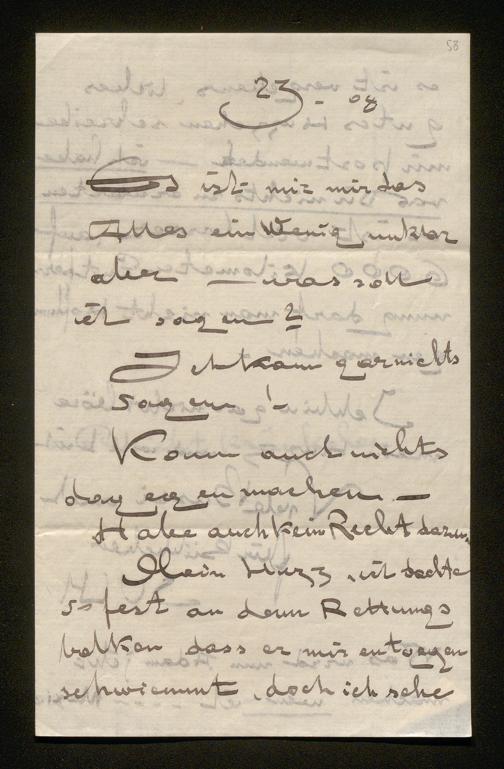 58
23 - 08
Es ist mir mir das
Alles ein Wenig unklar
aber — was soll
ich sagen?
Ich kann garnichts
sagen!-
Kann auch nichts
dagegen machen. —
Habe auch kein Recht darum.
Mein Herz, ich dachte
so fest an den Rettungs
balken dass er mir entgegen
schwimmt, doch ich sehe